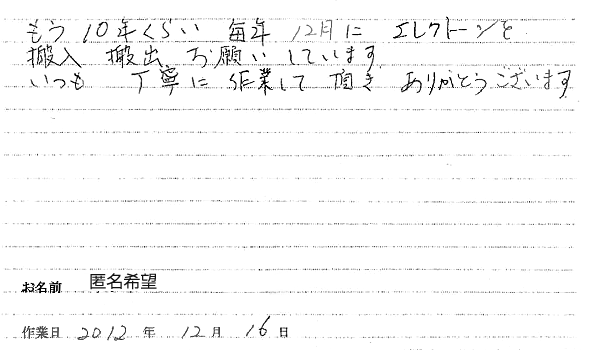 もう 10年くらい 毎年 12月に エレクトーンを
搬入 搬出 お願いしています
いつも 丁寧に 作業して 頂き ありがとうございます
お名前 匿名希望
作業日 2012 年 12 月 16 日